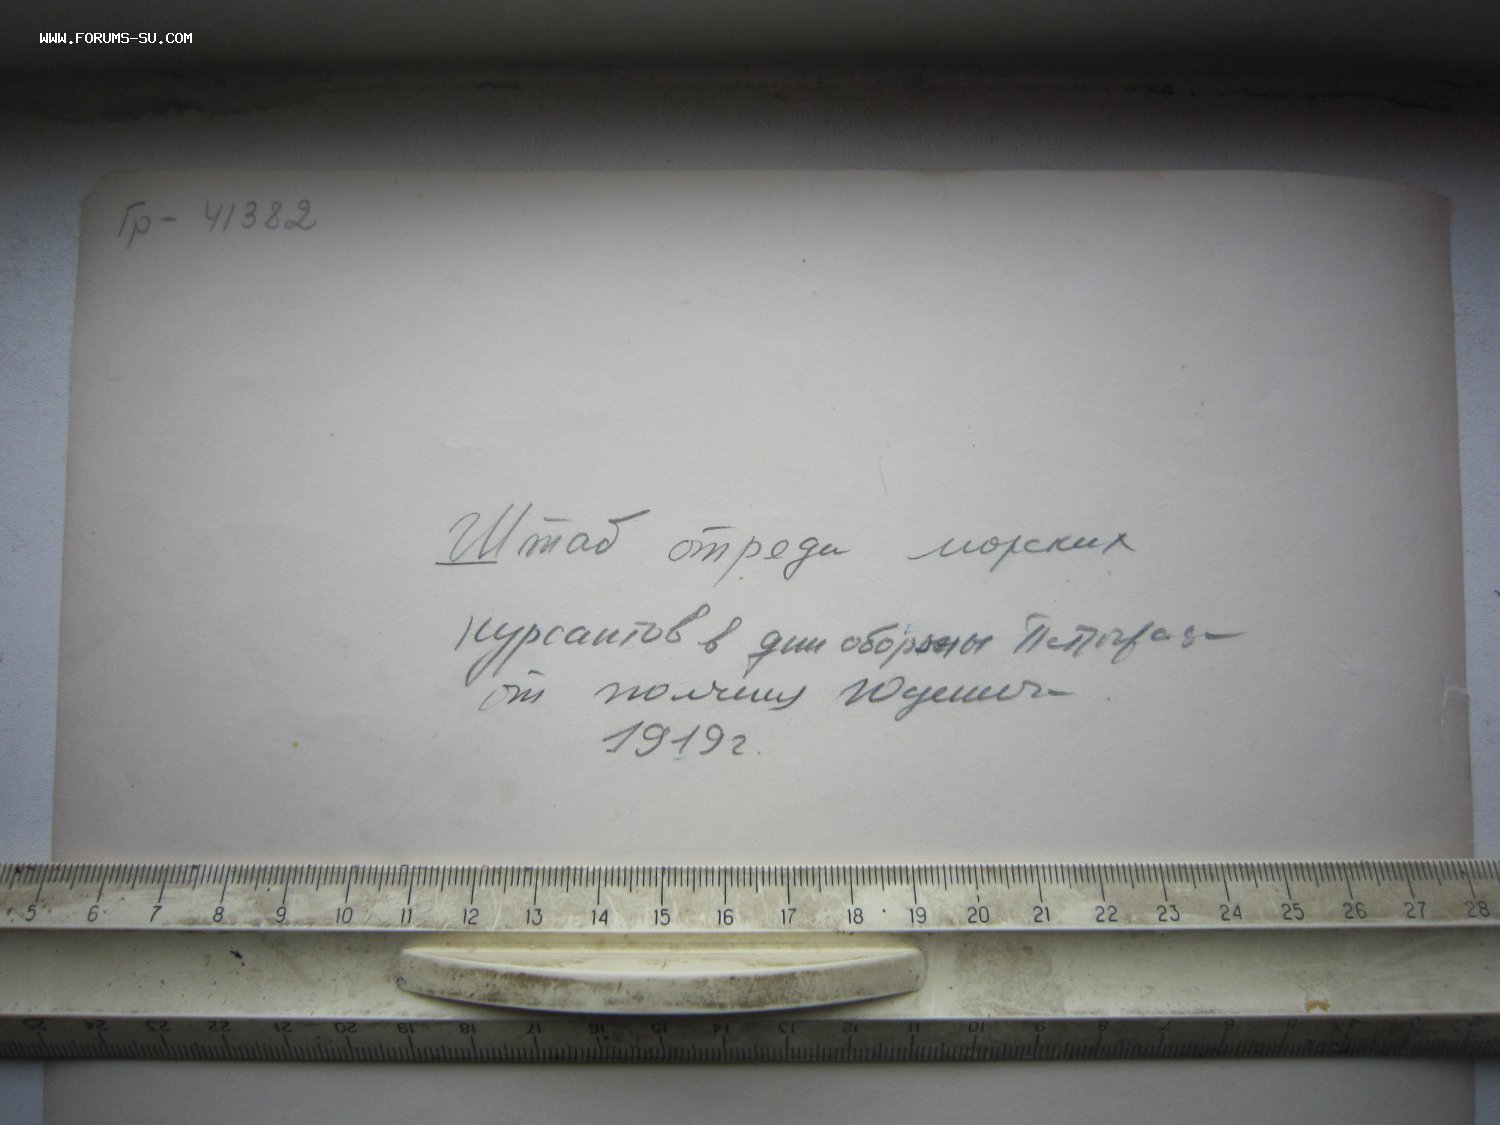 WWW.FORUMS-SU.COM
Гр- 41382
Штаб отряда морских
курсантов в дни обороны Петрограда
от полчищ Юденича
1919г.
5 6 7 8 9 10 11 12 13 14 15 16 17 18 19 20 21 22 23 24 25 26 27 28
25 24 23 22 21 20 19 18 17 16 15 14 13 12 11 10 9 8 7 6 5 4 3 2